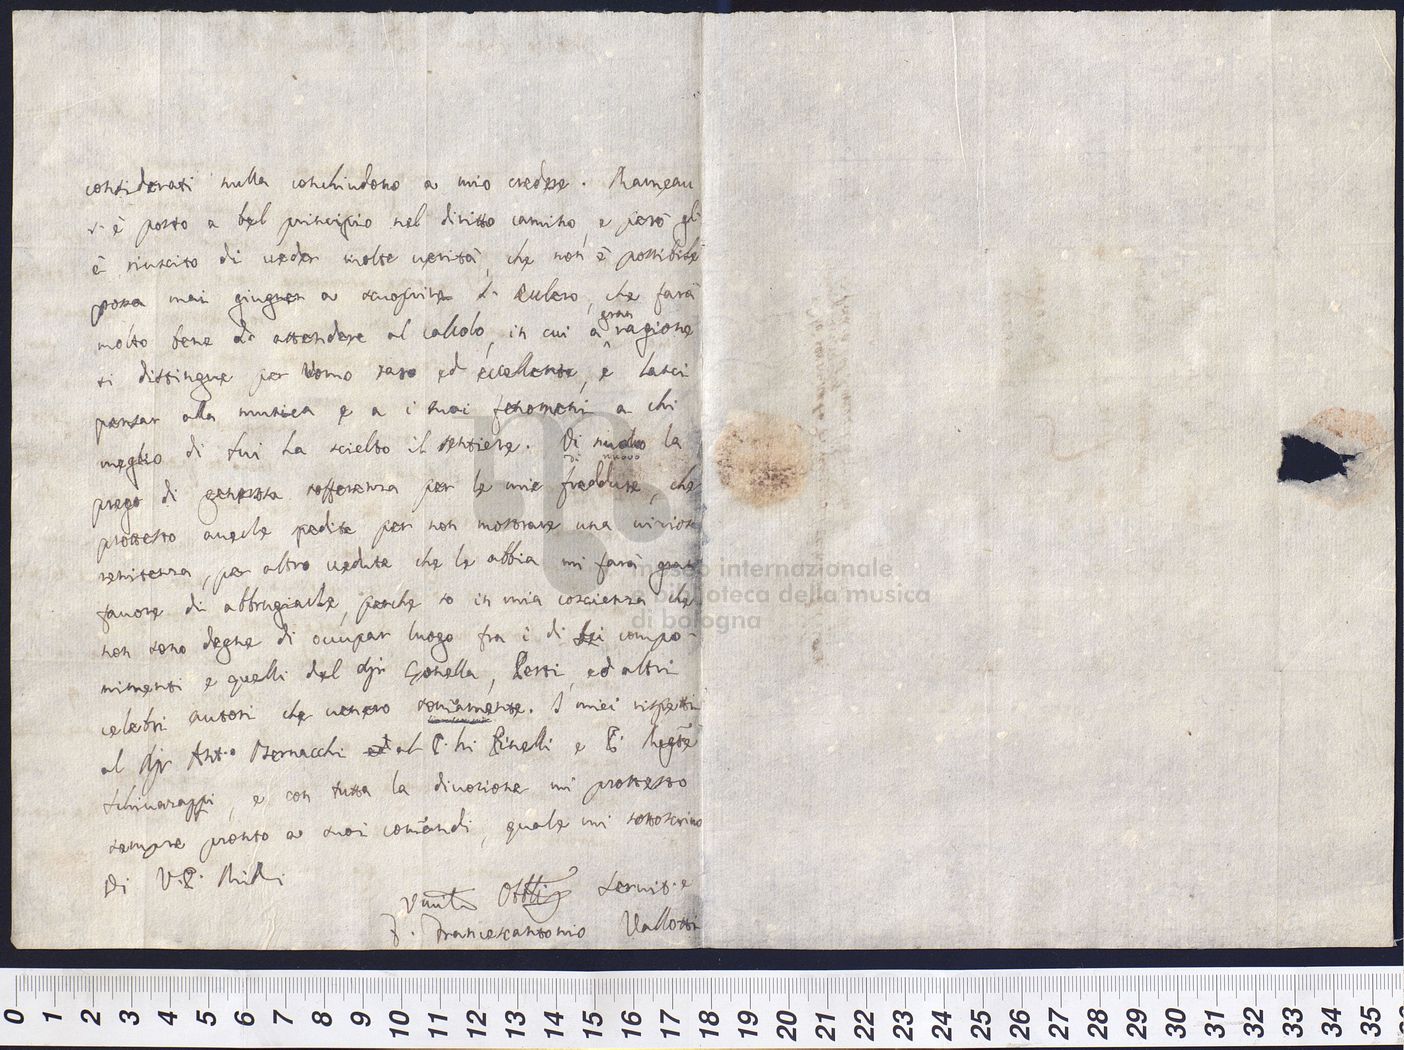 considerati nulla conchiudono a mio credere. Rameau
s'è posto a bel principio nel diritto camino, e però gli
è riuscito di veder molte verità, che non è possibile
possa mai giugner a scuoprire il Sr. Eulero, che farà
molto bene di attendere al calcolo, in cui a gran ragione
si distingue per Uomo raro ed eccellente, e lasci
pensar alla musica e a i suoi fenomeni a chi
meglio di lui ha scielto il sentiere. Di nuovo la
di nuovo
prego di generosa sofferenza per le mie freddure, che
protesto averle spedite per non mostrare una viziosa
renitenza, per altro vedute che le abbia mi farà gran
favore di abbrugiarle, perche so in mia coscienza che
non sono degne di occupar luogo fra i di Lei compo-
nimenti e quelli del Sigr Gonella, Perti, ed altri
celebri autori che venero somamente. I miei rispetti
al Sigr Ant.o Bernacchi ed al P. Lri Pinelli e P. Regte
Schiarappi, e con tutta la divozione mi protesto
sempre pronto a suoi comandi, quale mi sottoscrivo
Di V.P. M.R.
Umil Obbl Servit.e
F. Francescantonio Vallotti
museo internazionale
e biblioteca della musica
di bologna
0 1 2 3 4 5 6 7 8 9 10 11 12 13 14 15 16 17 18 19 20 21 22 23 24 25 26 27 28 29 30 31 32 33 34 35